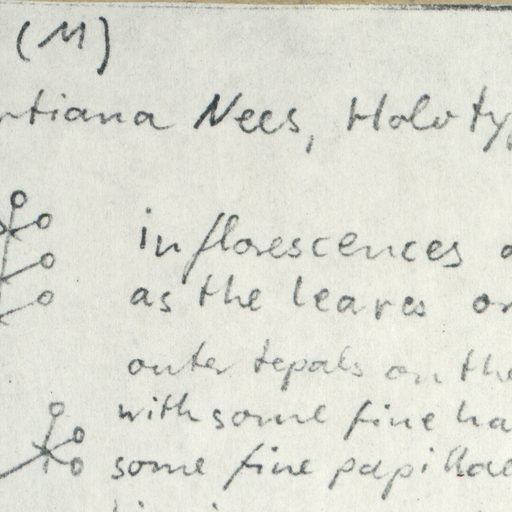 (M)
rtiana Nees, Holoty
inflorescences
as the leaves or
outer tepals on the
with some fine ha
some fine papillae